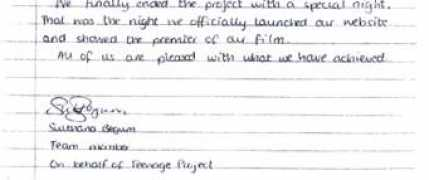 We finally ended the project with a special night.
That was the night we officially launched our website
and showed the premier of our film.
All of us are pleased with what we have achieved.
Begum
Team member
On behalf of Teenage Project